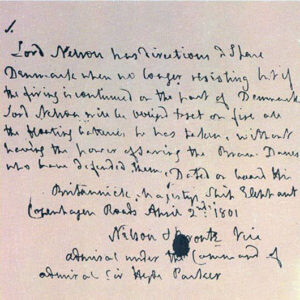 Lord Nelson has directions to spare
Denmark when no longer resisting but if
the firing is continued on the part of Denmark
Lord Nelson will be obliged to set on fire all
the floating batteries he has taken, without
having the power of saving the Brave Danes
who have defended them. Dated on board His
Britannick Majestys Ship Elephant
Copenhagen Roads April 2nd: 1801
Nelson & Bronte Vice
admiral under the Command of
admiral Sir Hyde Parker